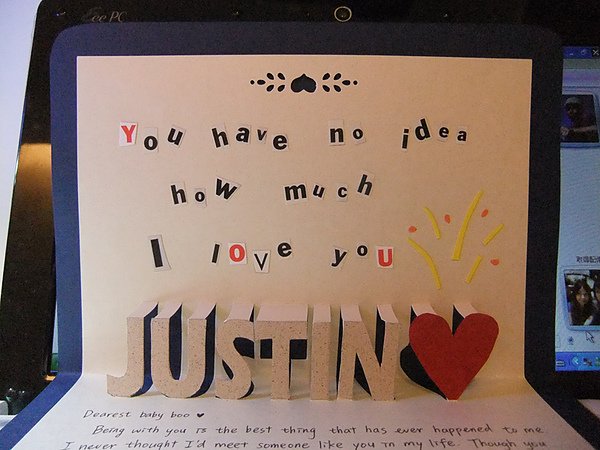 Eee PC
You have no idea
how much
I love you
JUSTIN
Dearest baby boo
Being with you is the best thing that has ever happened to me.
I never thought I'd meet someone like you in my life. Though you